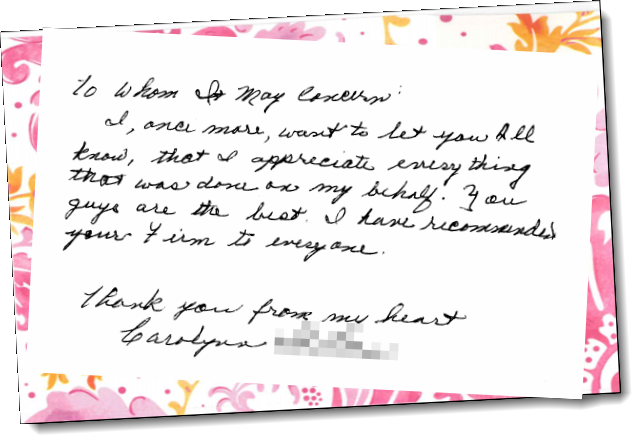 To Whom It May Concern:
I, once more, want to let you All
know, that I appreciate everything
that was done on my behalf. You
guys are the best. I have recommended
your Firm to everyone.
Thank you from my heart
Carolynn